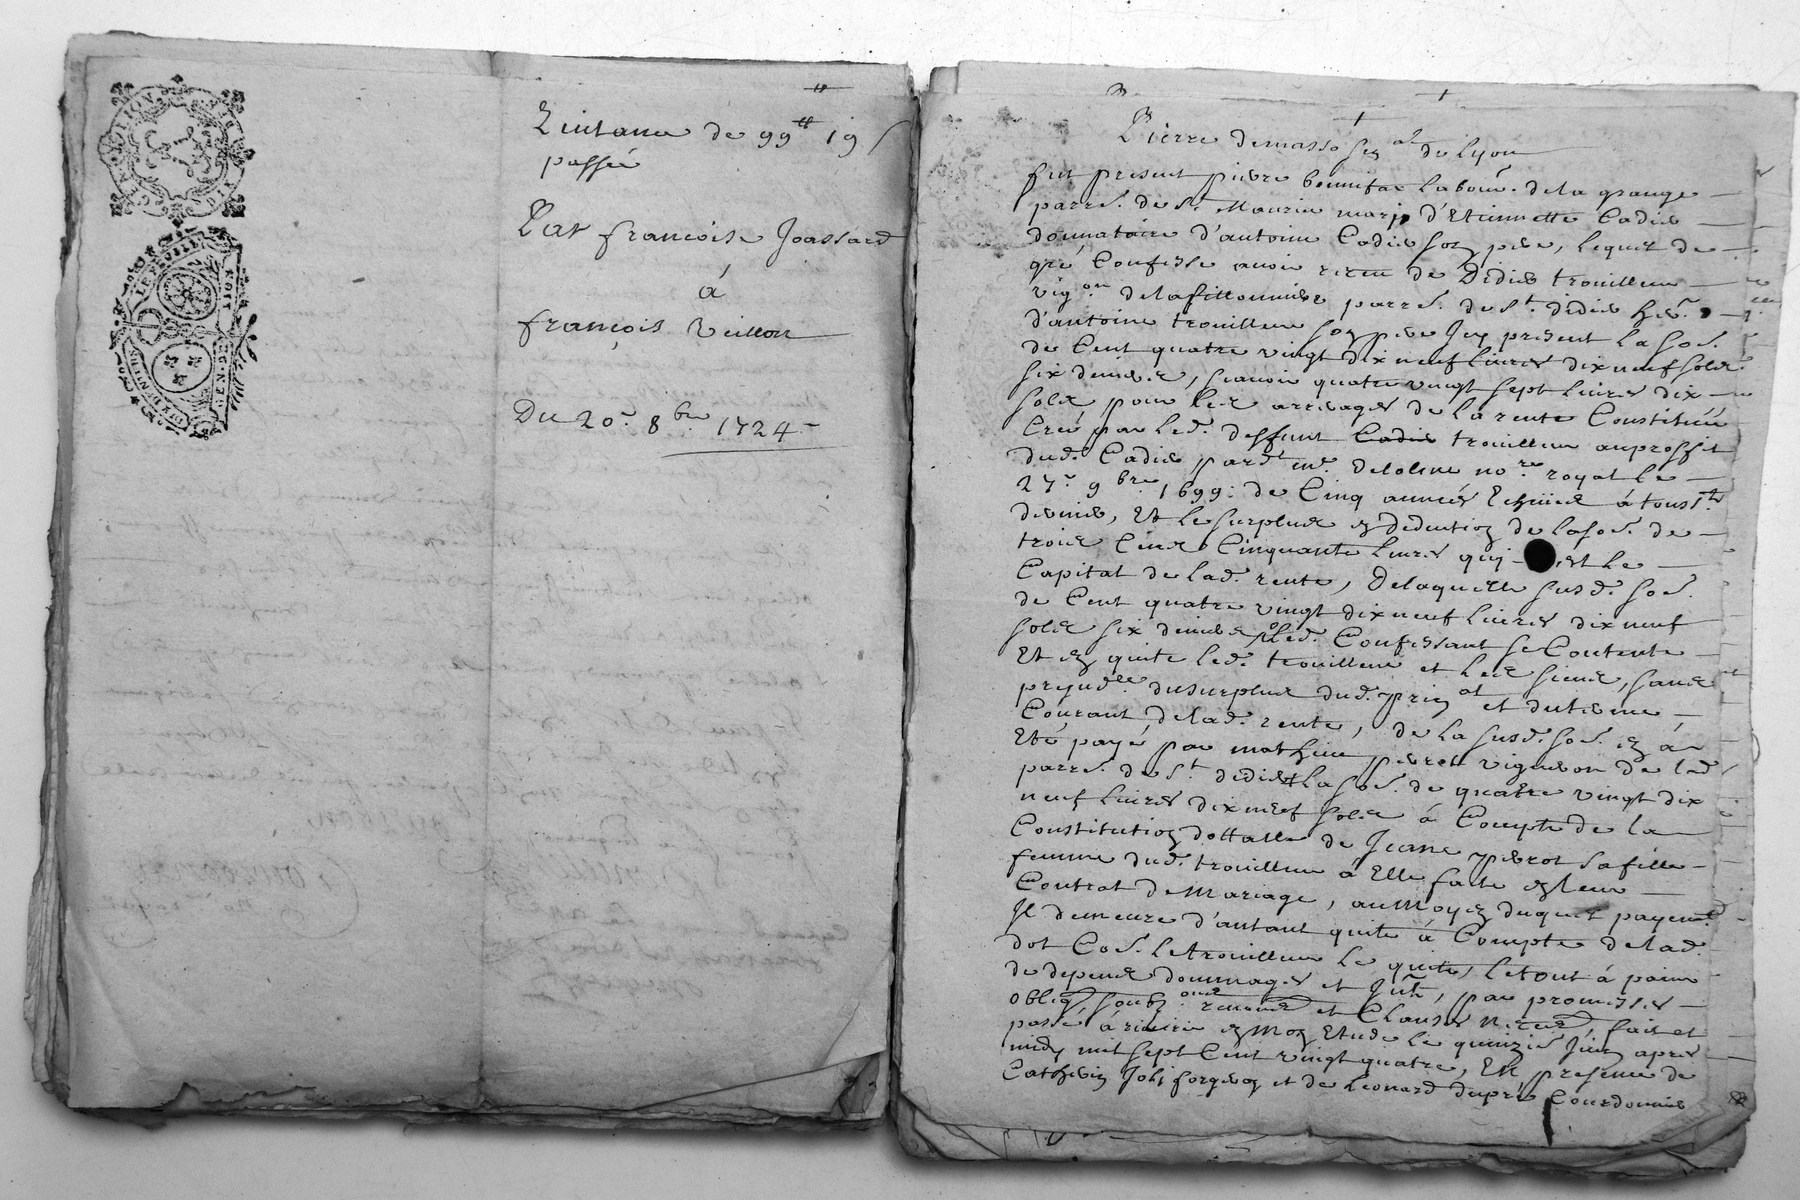 Quitance de 99tt 19 s
passée
Par françoise Joassard
à
françois Veillon
Du 20e 8bre 1724
Pierre Demasso sen al de Lyon
fut present pierre bonnifac labour. de la grange
parre. de st. Maurice mary d'Etiennette Cadier
donnataire d'antoine Cadier son pere, lequel de
gré Confesse avoir receu de Didier trouilleur
vigon de parre. de st. didier her.
d'antoine trouilleur son pere Icy present la som.
de Cent quatre vingt dix neuf livres dix neuf sols
six deniers, scavoir quatre vingt sept livres dix
sols pour les arrerages de la rente Constituée
Créé par led. deffunt Cadier trouilleur au proffit
dud. Cadier par dt me. Delolme nore royal le
27e 9bre 1699: de Cinq années Echûes à touss.ts
derniers, Et le surplus en deduction de la som. de
trois Cens Cinquante livres qui est le
Capital de lad. rente, Delaquelle susd. som.
de Cent quatre vingt dix neuf livres dix neuf
sols six deniers led. Confessant se Contente
Et en quite led. trouilleur et les siens, sans
prejudce du surplus dud. prin al et du terme
Courant de lad. rente, de la susd. som. en a
Eté payé par mathieu perrot vigneron de lad
parre. de st. didier la som. de quatre vingt dix
neuf livres dix neuf sols à Compte de la
Constitution dottalle de Jeanne perrot sa fille
femme dud. trouilleur à Elle faite en leur
Contrat de Mariage, au Moyen duquel payemt.
Il demeure d'autant quite à Compte de lad.
dot Co. le trouilleur le quite, le tout à peine
de depens dommages et Jnts, par promesses
oblig. soub. ons renonc. et Clauses necres, fait et
passé à riverie en Mon Etude le quinzie Juin apres
midy mil sept Cent vingt quatre, En presence de
Cathelin Joly forgeron et de Leonard dupré Courdonnier